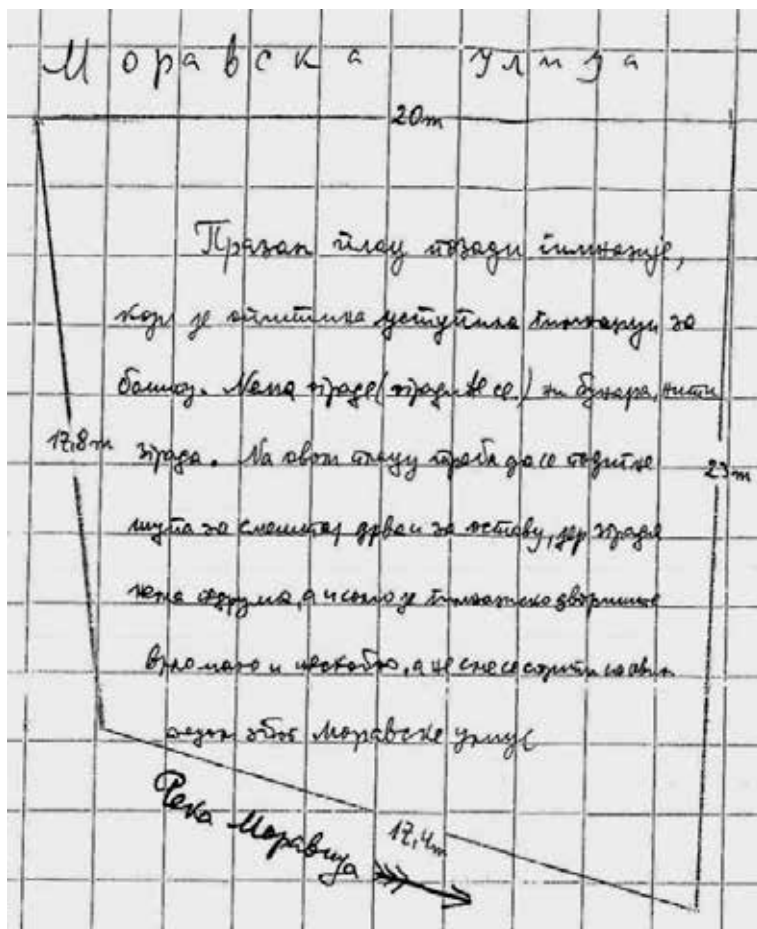 Моравска улица
20m
Празан плац позади гимназије,
који је општина уступила гимназији за
Нема ограде (се) ни бунара, нити
17,8m
зграда. На овом плацу треба да се подигне
23m
шупа за смештај дрва и за оставу, јер зграда
нема подрума, а и само је гимназиско двориште
врло мало и, а не сме се спојити са овим
због Моравске улице
Река Моравица
17,4m